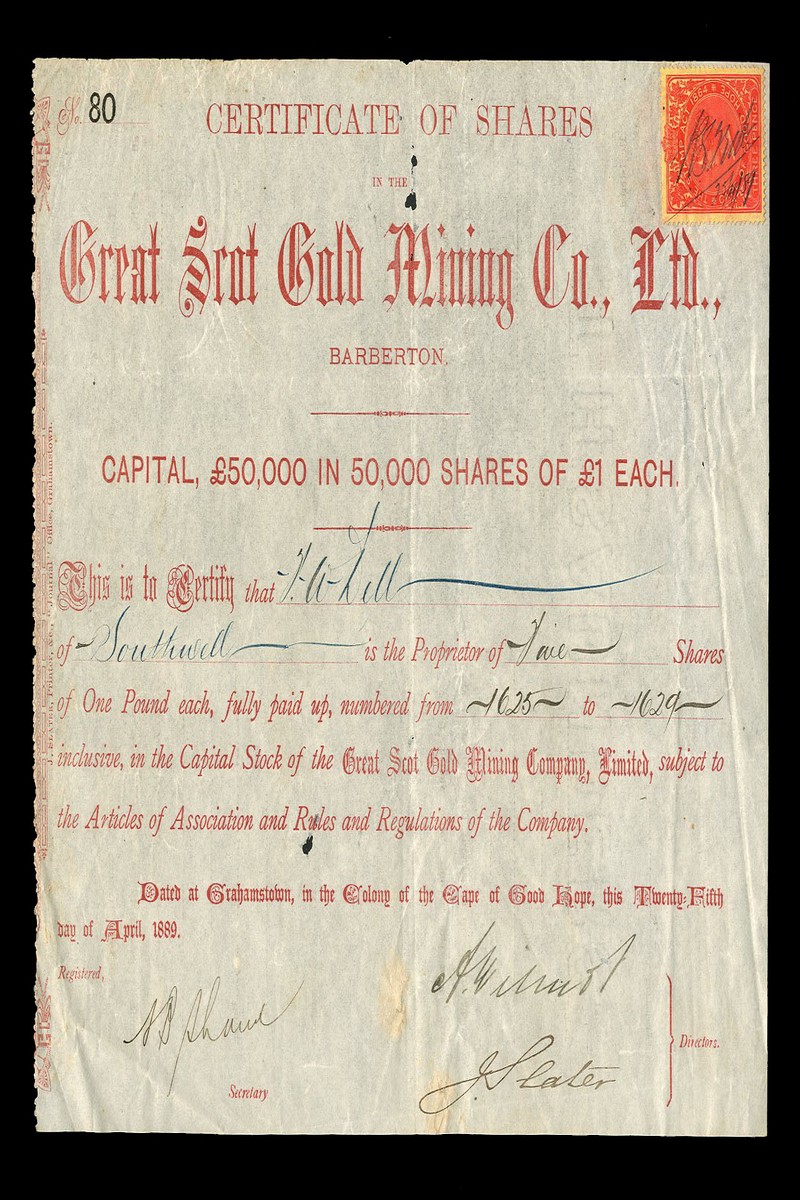 No. 80
CERTIFICATE OF SHARES
IN THE
Great Scot Gold Mining Co., Ltd.,
BARBERTON,
CAPITAL, £50,000 IN 50,000 SHARES OF £1 EACH.
This is to Certify that
of Southwell is the Proprietor of Five Shares
of One Pound each, fully paid up, numbered from 1625 to 1629
inclusive, in the Capital Stock of the Great Scot Gold Mining Company, Limited, subject to
the Articles of Association and Rules and Regulations of the Company.
Dated at Grahamstown, in the Colony of the Cape of Good Hope, this Twenty-Fifth
day of April, 1889.
Registered,
A. Wilmot
J. Slater
Directors.
Secretary
J. SLATER, Printer, &c., "Journal" Office, Grahamstown.
ACT 1864